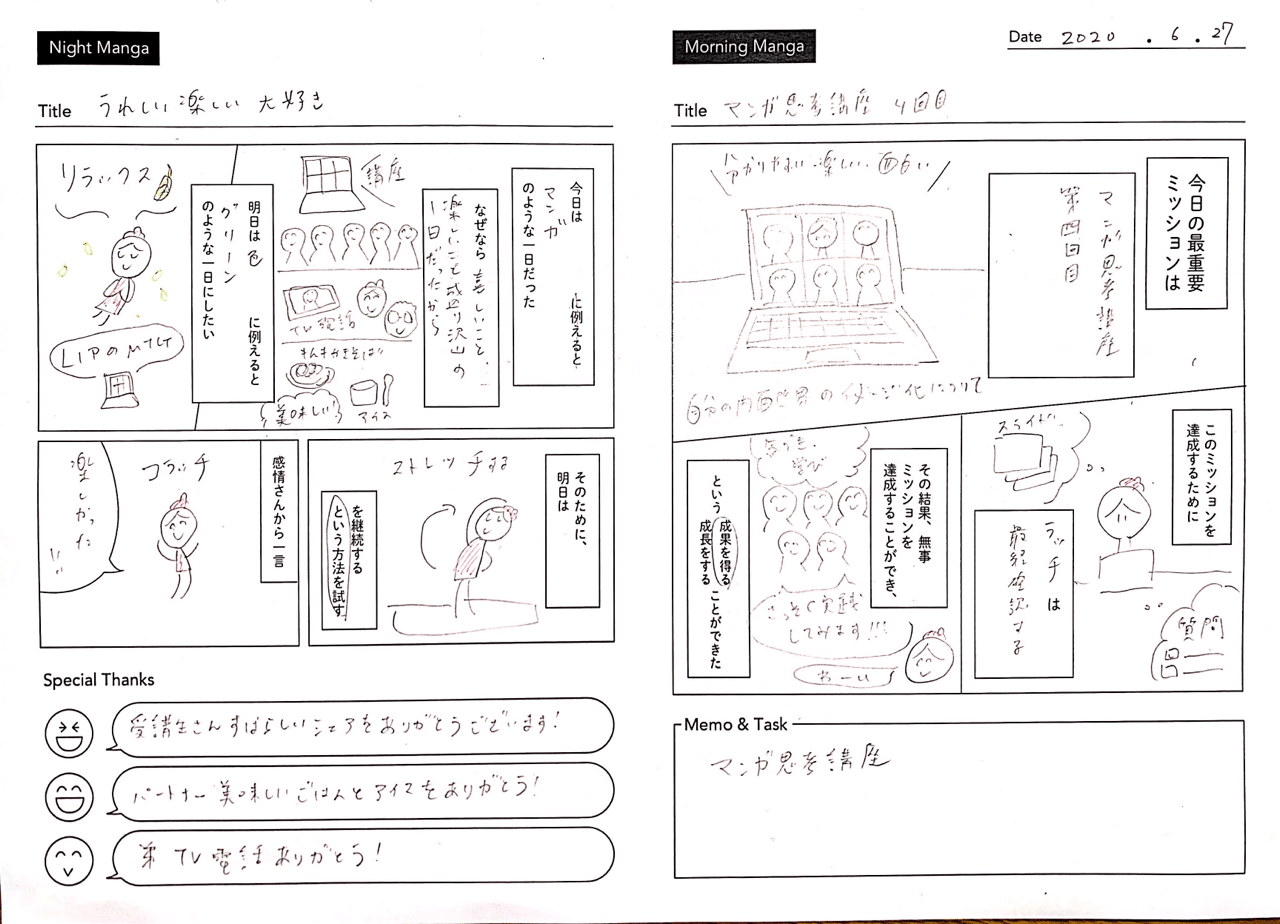 Night Manga
Title うれしい楽しい 大好き
今日は
マンガ
に例えると
のような一日だった
なぜなら 喜しいこと、
楽しいこと盛り沢山の
1日だったから
講座
TV電話
美味しい
アイス
明日は 色
グリーン
に例えると
のような一日にしたい
リラックス
LIPのMTGT
そのために、
明日は
ストレッチする
を継続する
という方法を試す
感情さんから一言
コラッチ
楽しかった
!!
Special Thanks
受講生さんすばらしいシェアをありがとうございます!
パートナー 美味しいごはんとアイスをありがとう!
弟 TV電話ありがとう!
Morning Manga
Date 2020 . 6 . 27
Title マンガ思考講座 4回目
今日の最重要
ミッションは
マンガ思考講座
第四回目
分かりやすい 楽しい 面白い
自分の内面世界のイメージ化について
このミッションを
達成するために
スライド
ラッチは
最終確認する
質問
その結果、無事
ミッションを
達成することができ、
気づき、
学び
さっそく実践
してみます!!!
わーい
という
成果を得る
成長をする
ことができた
Memo & Task
マンガ思考講座